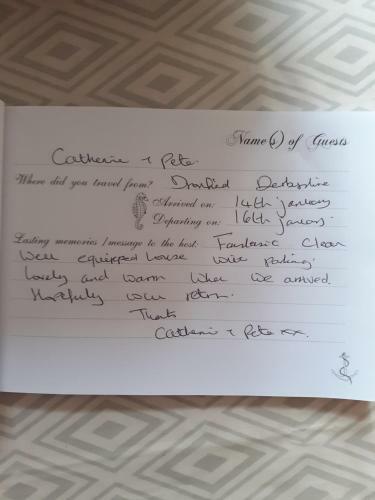 Name(s) of Guests
Catherine + Pete.
Where did you travel from? Dronfield Derbyshire
Arrived on: 14th january
Departing on: 16th january.
Lasting memories / message to the host: Fantasic Clean
Well equipped house with parking.
Lovely and warm when we arrived.
Hopefully will return.
Thanks
Catherine + Pete xx.